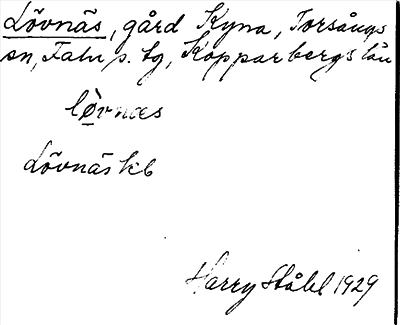 Lövnäs, gård Kyna, Torsångs
sn, Falu s. tg, Kopparbergs län
lø̀vnæs
Lövnäs kb
Harry Ståhl 1929